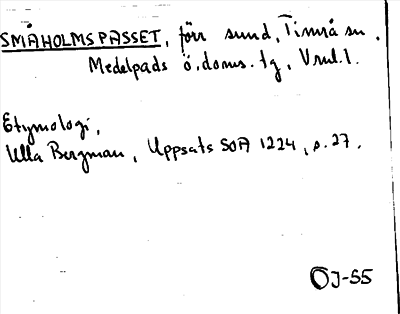 SMÅHOLMSPASSET, förr sund, Timrå sn.
Medelpads ö. doms. tg, Vnl. l.
Etymologi,
Ulla Bergman, Uppsats SOA 1224, s. 27.
OJ-55